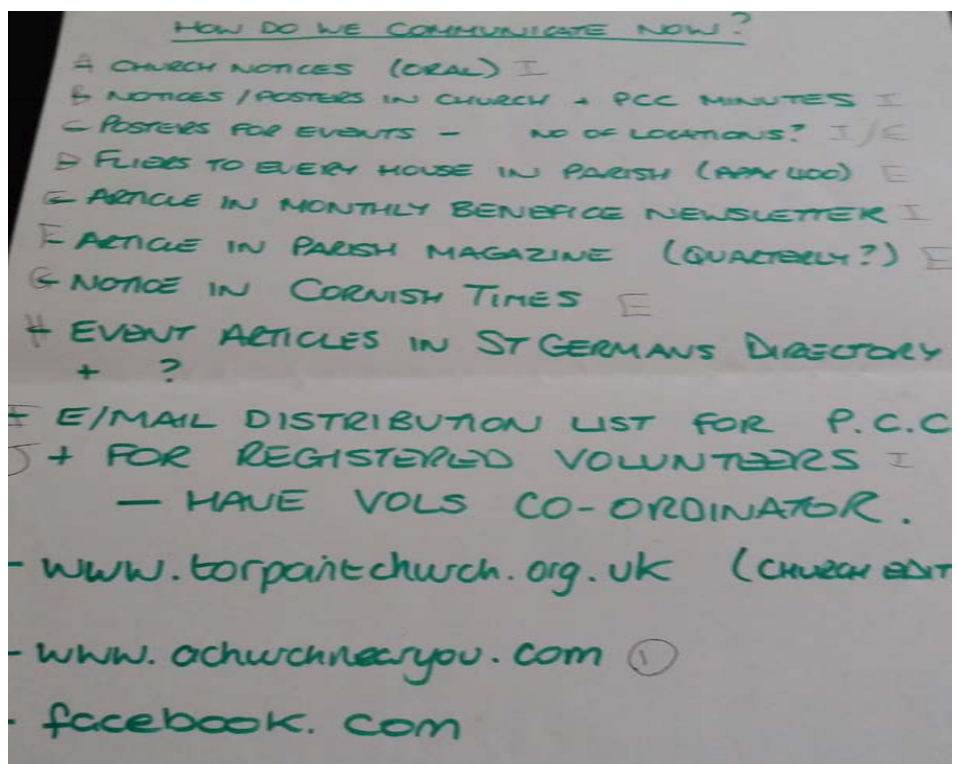 HOW DO WE COMMUNICATE NOW?
A CHURCH NOTICES (ORAL) I
B NOTICES / POSTERS IN CHURCH + PCC MINUTES I
C POSTERS FOR EVENTS - NO OF LOCATIONS? I/E
D FLIERS TO EVERY HOUSE IN PARISH (APPX 400) E
E ARTICLE IN MONTHLY BENEFICE NEWSLETTER I
F ARTICLE IN PARISH MAGAZINE (QUARTERLY?) E
G NOTICE IN CORNISH TIMES E
H EVENT ARTICLES IN ST GERMANS DIRECTORY
+ ?
I E/MAIL DISTRIBUTION LIST FOR P.C.C
J + FOR REGISTERED VOLUNTEERS I
- HAVE VOLS CO-ORDINATOR.
- www.torpointchurch.org.uk (CHURCH EDIT
- www.achurchnearyou.com 1
- facebook.com